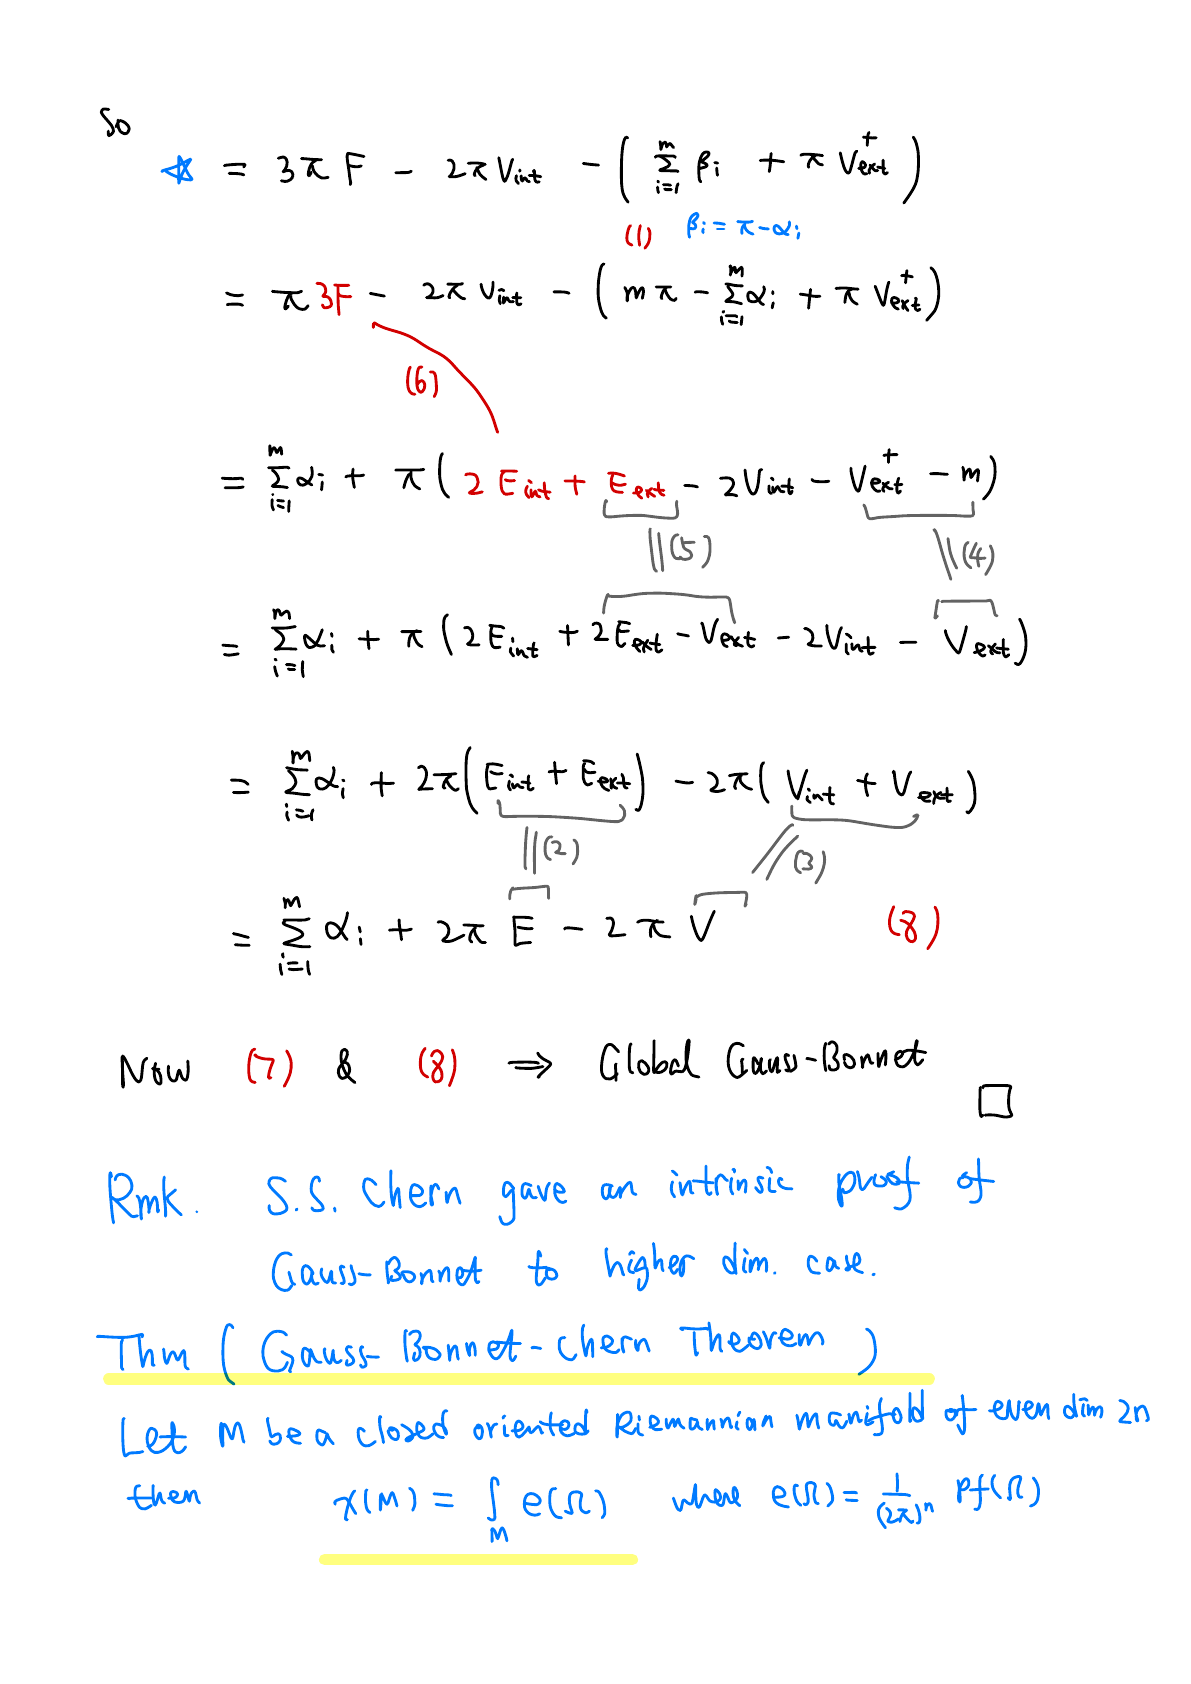 So
☆ = 3π F − 2π V_int − ( Σ_{i=1}^{m} β_i + π V_ext^+ )
(1) β_i = π − α_i
= π 3F − 2π V_int − ( mπ − Σ_{i=1}^{m} α_i + π V_ext^+ )
(6)
= Σ_{i=1}^{m} α_i + π ( 2 E_int + E_ext − 2V_int − V_ext^+ − m )
||(5) \\(4)
= Σ_{i=1}^{m} α_i + π ( 2E_int + 2E_ext − V_ext − 2V_int − V_ext )
= Σ_{i=1}^{m} α_i + 2π ( E_int + E_ext ) − 2π ( V_int + V_ext )
||(2) //(3)
= Σ_{i=1}^{m} α_i + 2π E − 2π V (8)
Now (7) & (8) ⇒ Global Gauss-Bonnet
□
Rmk. S.S. Chern gave an intrinsic proof of
Gauss-Bonnet to higher dim. case.
Thm ( Gauss-Bonnet-Chern Theorem )
Let M be a closed oriented Riemannian manifold of even dim 2n
then χ(M) = ∫_M e(Ω) where e(Ω) = 1/(2π)^n Pf(Ω)